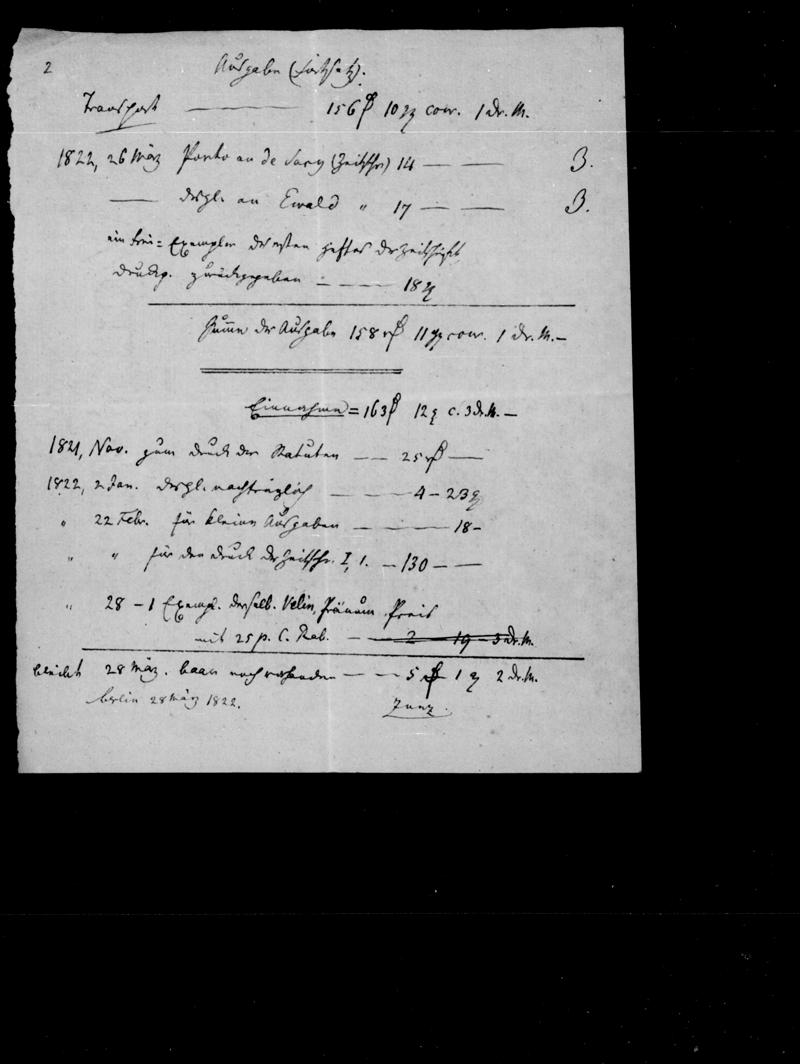 2
Ausgabe (Fortsetz.).
Transport — 156 10 cour. 1 dr. M.
1822, 26 März Porto an de Sacy (Zeitschr.) 14 — — 3.
— desgl. an Ewald " 17 — — 3.
ein frei-Exemplar des ersten Heftes der Zeitschrift
zurückgegeben — — 18
Summe der Ausgabe 158 11 cour. 1 dr. M. —
Einnahme = 163 12 c. 3 dr. M. —
1821, Nov. zum Druck der Statuten — — 25 —
1822, 2 Jan. desgl. nachträglich — — 4 — 23
" 22 Febr. für kleine Ausgaben — — 18 —
" " für den Druck der Zeitschr. I, 1. — 130 — —
" 28 — 1 Exempl. derselb. Velin, Pränum. Preis
mit 25 p. C. Rab. — — 2 — 19 — 3 dr. M.
bleibt 28 März. baar noch vorhanden — — 5 1 2 dr. M.
Berlin 28 März 1822. Zunz.